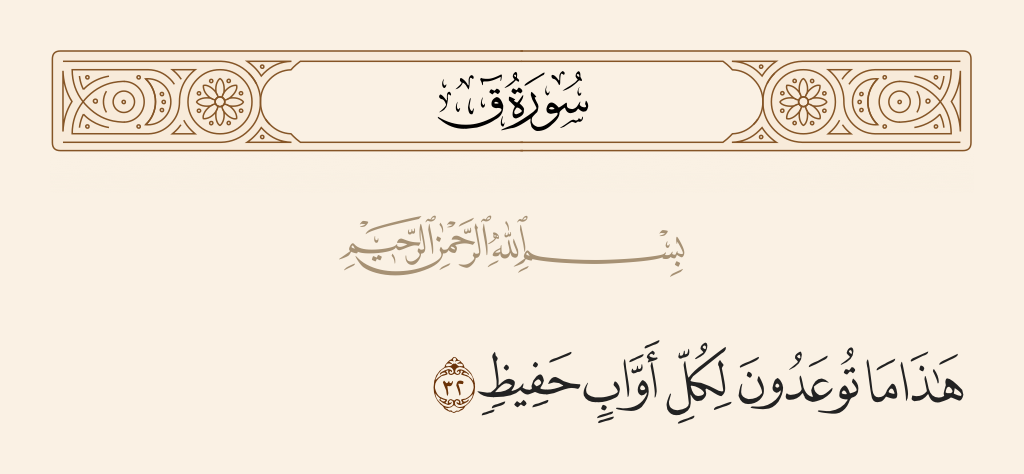 سُورَةُ قٓ
بِسْمِ ٱللَّهِ ٱلرَّحْمَٰنِ ٱلرَّحِيمِ
هَٰذَا مَا تُوعَدُونَ لِكُلِّ أَوَّابٍ حَفِيظٍ ٣٢